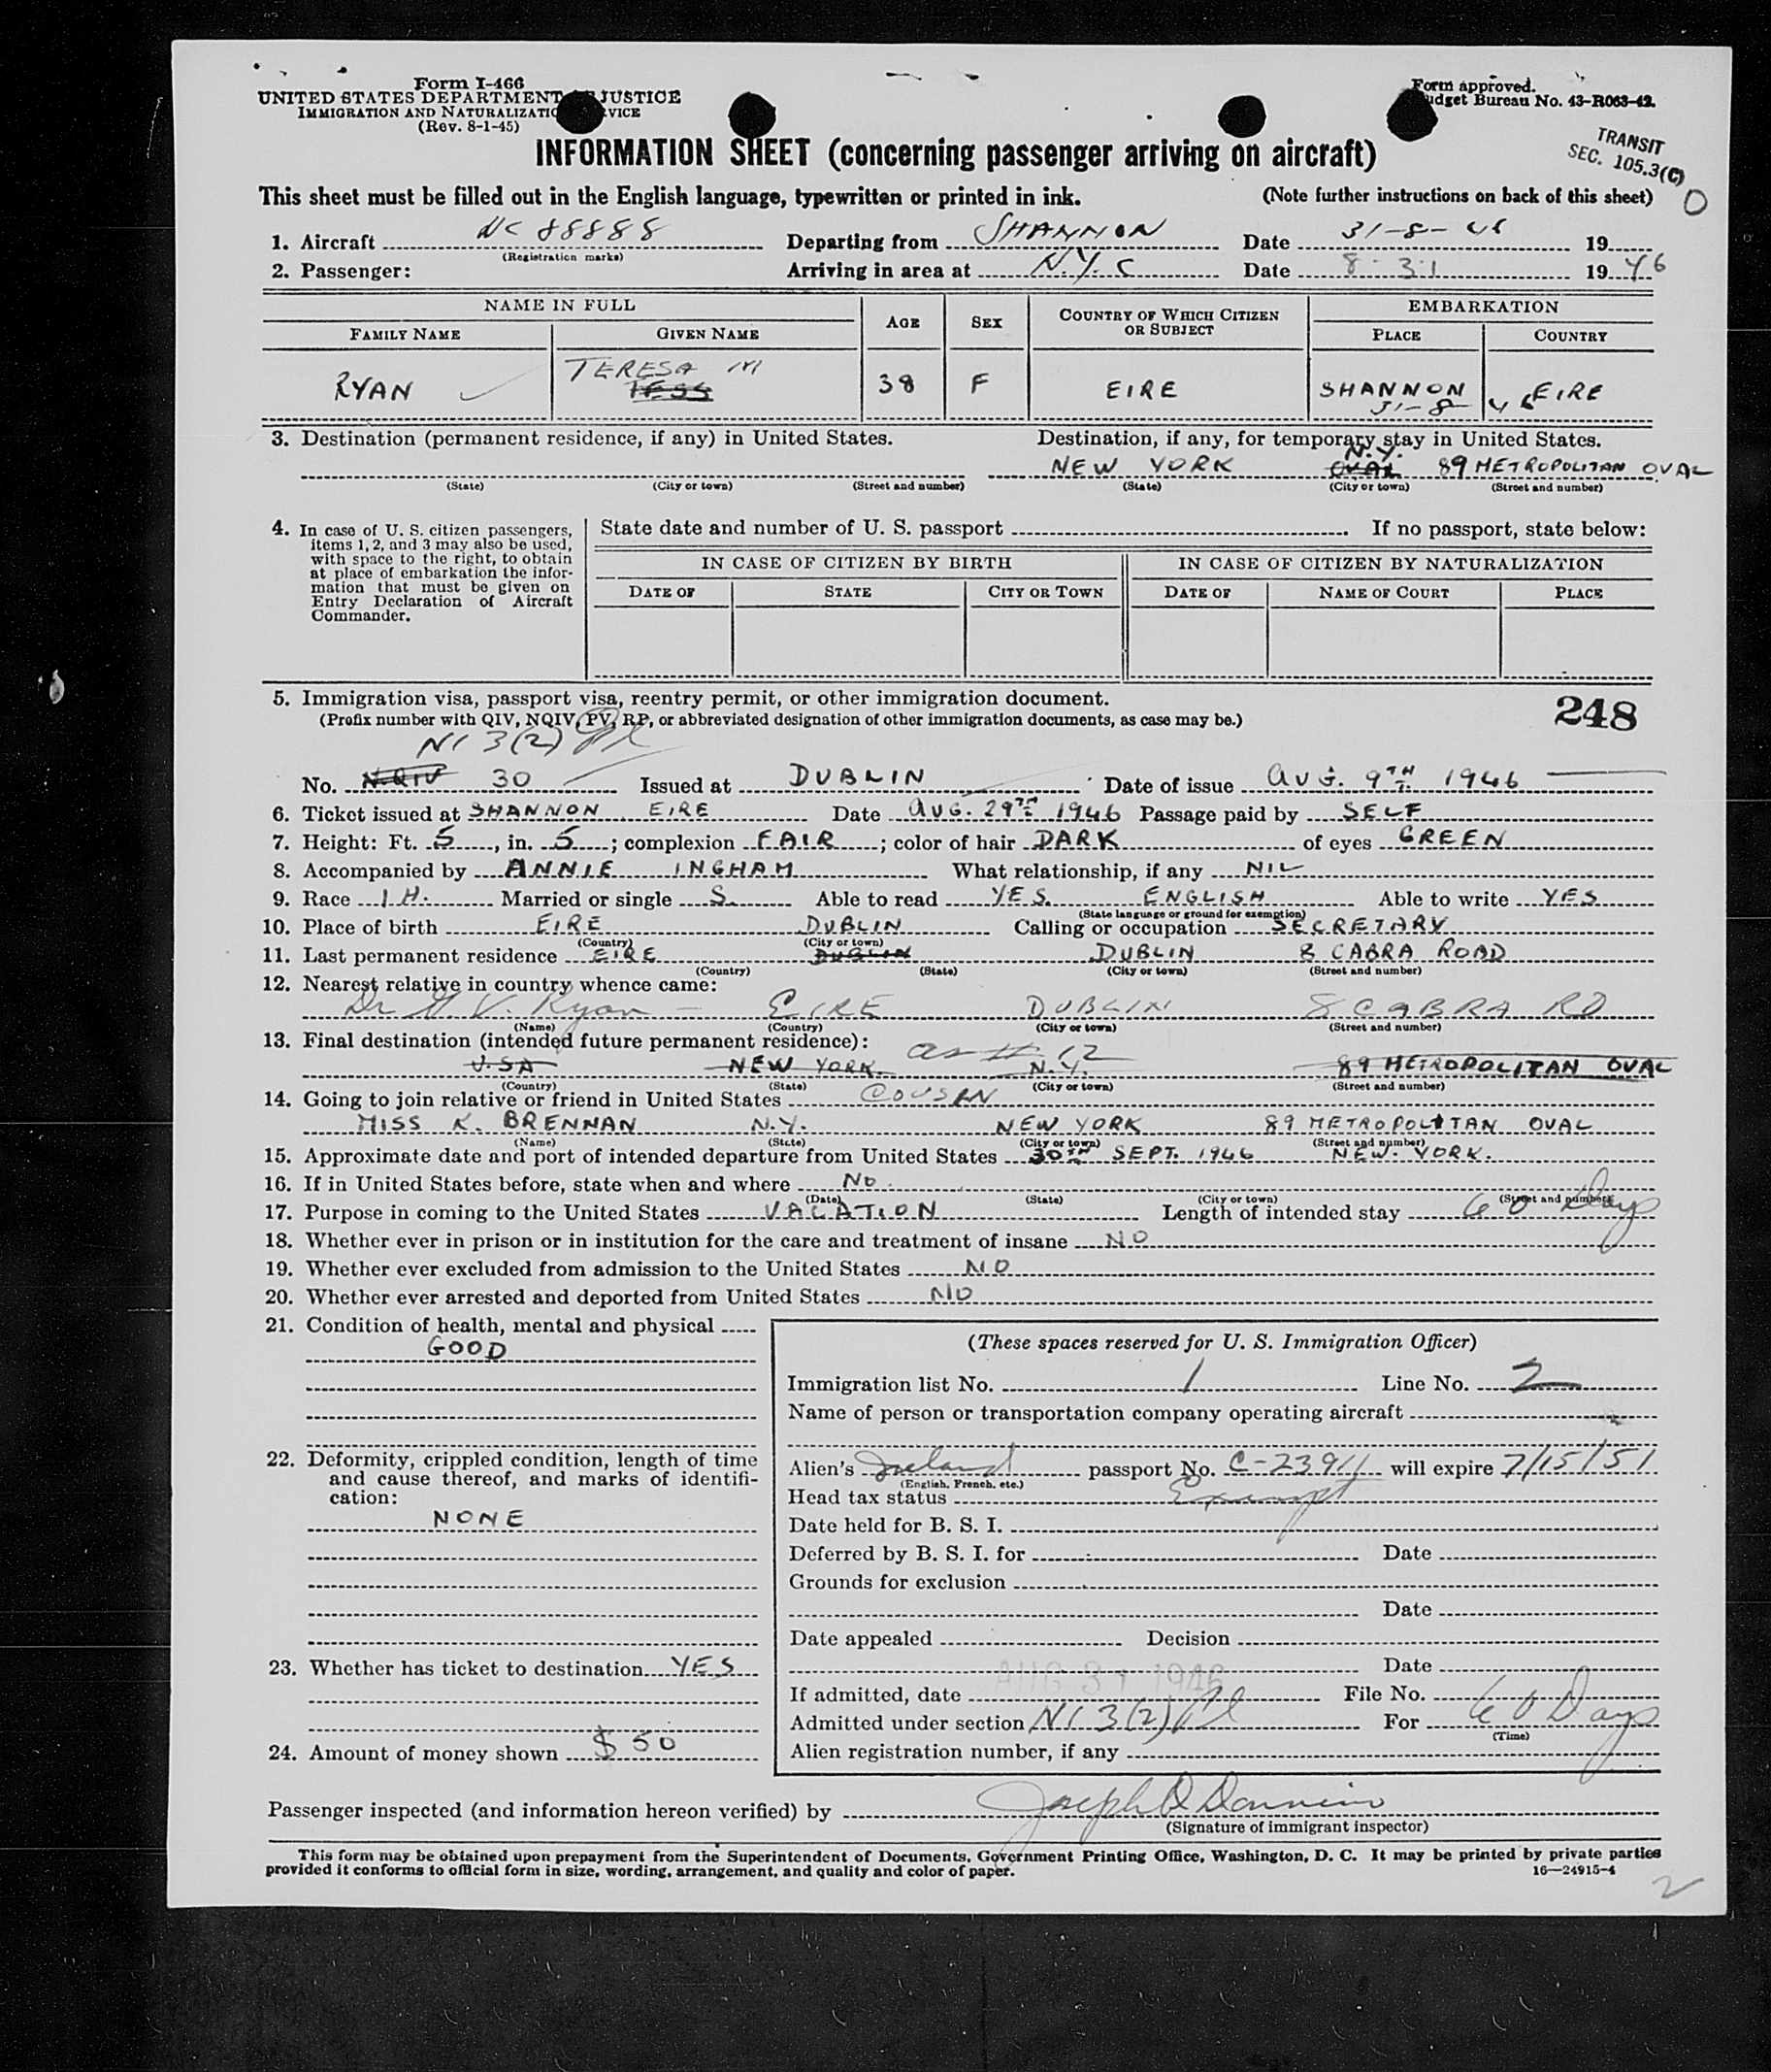 Form I-466
UNITED STATES DEPARTMENT JUSTICE
IMMIGRATION AND NATURALIZATIO VICE
(Rev. 8-1-45)
Form approved.
udget Bureau No. 43-R063-42.
TRANSIT
SEC. 105.3(C)
INFORMATION SHEET (concerning passenger arriving on aircraft)
This sheet must be filled out in the English language, typewritten or printed in ink. (Note further instructions on back of this sheet)
1. Aircraft NC 88888 Departing from SHANNON Date 31-8-46 19
(Registration marks)
2. Passenger: Arriving in area at N.Y.C Date 8-31 1946
NAME IN FULL AGE SEX COUNTRY OF WHICH CITIZEN OR SUBJECT EMBARKATION
FAMILY NAME GIVEN NAME PLACE COUNTRY
TERESA M
RYAN TESS 38 F EIRE SHANNON EIRE
31-8 46
3. Destination (permanent residence, if any) in United States. Destination, if any, for temporary stay in United States.
N.Y.
NEW YORK OVAL 89 METROPOLITAN OVAL
(State) (City or town) (Street and number) (State) (City or town) (Street and number)
4. In case of U. S. citizen passengers,
items 1, 2, and 3 may also be used,
with space to the right, to obtain
at place of embarkation the infor-
mation that must be given on
Entry Declaration of Aircraft
Commander.
State date and number of U. S. passport . If no passport, state below:
IN CASE OF CITIZEN BY BIRTH IN CASE OF CITIZEN BY NATURALIZATION
DATE OF STATE CITY OR TOWN DATE OF NAME OF COURT PLACE
5. Immigration visa, passport visa, reentry permit, or other immigration document.
(Prefix number with QIV, NQIV, PV, RP, or abbreviated designation of other immigration documents, as case may be.)
248
NI 3(2)
No. NQIV 30 Issued at DUBLIN Date of issue AUG. 9TH 1946
6. Ticket issued at SHANNON EIRE Date AUG. 29TH 1946 Passage paid by SELF
7. Height: Ft. 5, in. 5; complexion FAIR; color of hair DARK of eyes GREEN
8. Accompanied by ANNIE INGHAM What relationship, if any NIL
9. Race IH. Married or single S. Able to read YES. ENGLISH Able to write YES
(State language or ground for exemption)
10. Place of birth EIRE DUBLIN Calling or occupation SECRETARY
(Country) (City or town)
11. Last permanent residence EIRE DUBLIN DUBLIN 8 CABRA ROAD
(Country) (State) (City or town) (Street and number)
12. Nearest relative in country whence came:
Dr V. Ryan - EIRE DUBLIN 8 CABRA RD
(Name) (Country) (City or town) (Street and number)
13. Final destination (intended future permanent residence): as # 12
U.SA NEW YORK. N.Y. 89 METROPOLITAN OVAL
(Country) (State) (City or town) (Street and number)
14. Going to join relative or friend in United States COUSIN
MISS K. BRENNAN N.Y. NEW YORK 89 METROPOLITAN OVAL
(Name) (State) (City or town) (Street and number)
15. Approximate date and port of intended departure from United States 30TH SEPT. 1946 NEW. YORK.
16. If in United States before, state when and where NO.
(Date) (State) (City or town) (Street and number)
17. Purpose in coming to the United States VACATION Length of intended stay 60 Days
18. Whether ever in prison or in institution for the care and treatment of insane NO
19. Whether ever excluded from admission to the United States NO
20. Whether ever arrested and deported from United States NO
21. Condition of health, mental and physical
GOOD
22. Deformity, crippled condition, length of time
and cause thereof, and marks of identifi-
cation:
NONE
23. Whether has ticket to destination YES
24. Amount of money shown $50
(These spaces reserved for U. S. Immigration Officer)
Immigration list No. 1 Line No. 2
Name of person or transportation company operating aircraft
Alien's Ireland passport No. C-23911 will expire 7/15/51
(English, French, etc.)
Head tax status Exempt
Date held for B. S. I.
Deferred by B. S. I. for Date
Grounds for exclusion
Date
Date appealed Decision
Date
AUG 31 1946
If admitted, date File No.
Admitted under section NI 3(2) For 60 Days
(Time)
Alien registration number, if any
Passenger inspected (and information hereon verified) by Joseph
(Signature of immigrant inspector)
This form may be obtained upon prepayment from the Superintendent of Documents, Government Printing Office, Washington, D. C. It may be printed by private parties
provided it conforms to official form in size, wording, arrangement, and quality and color of paper. 16—24915-4
2